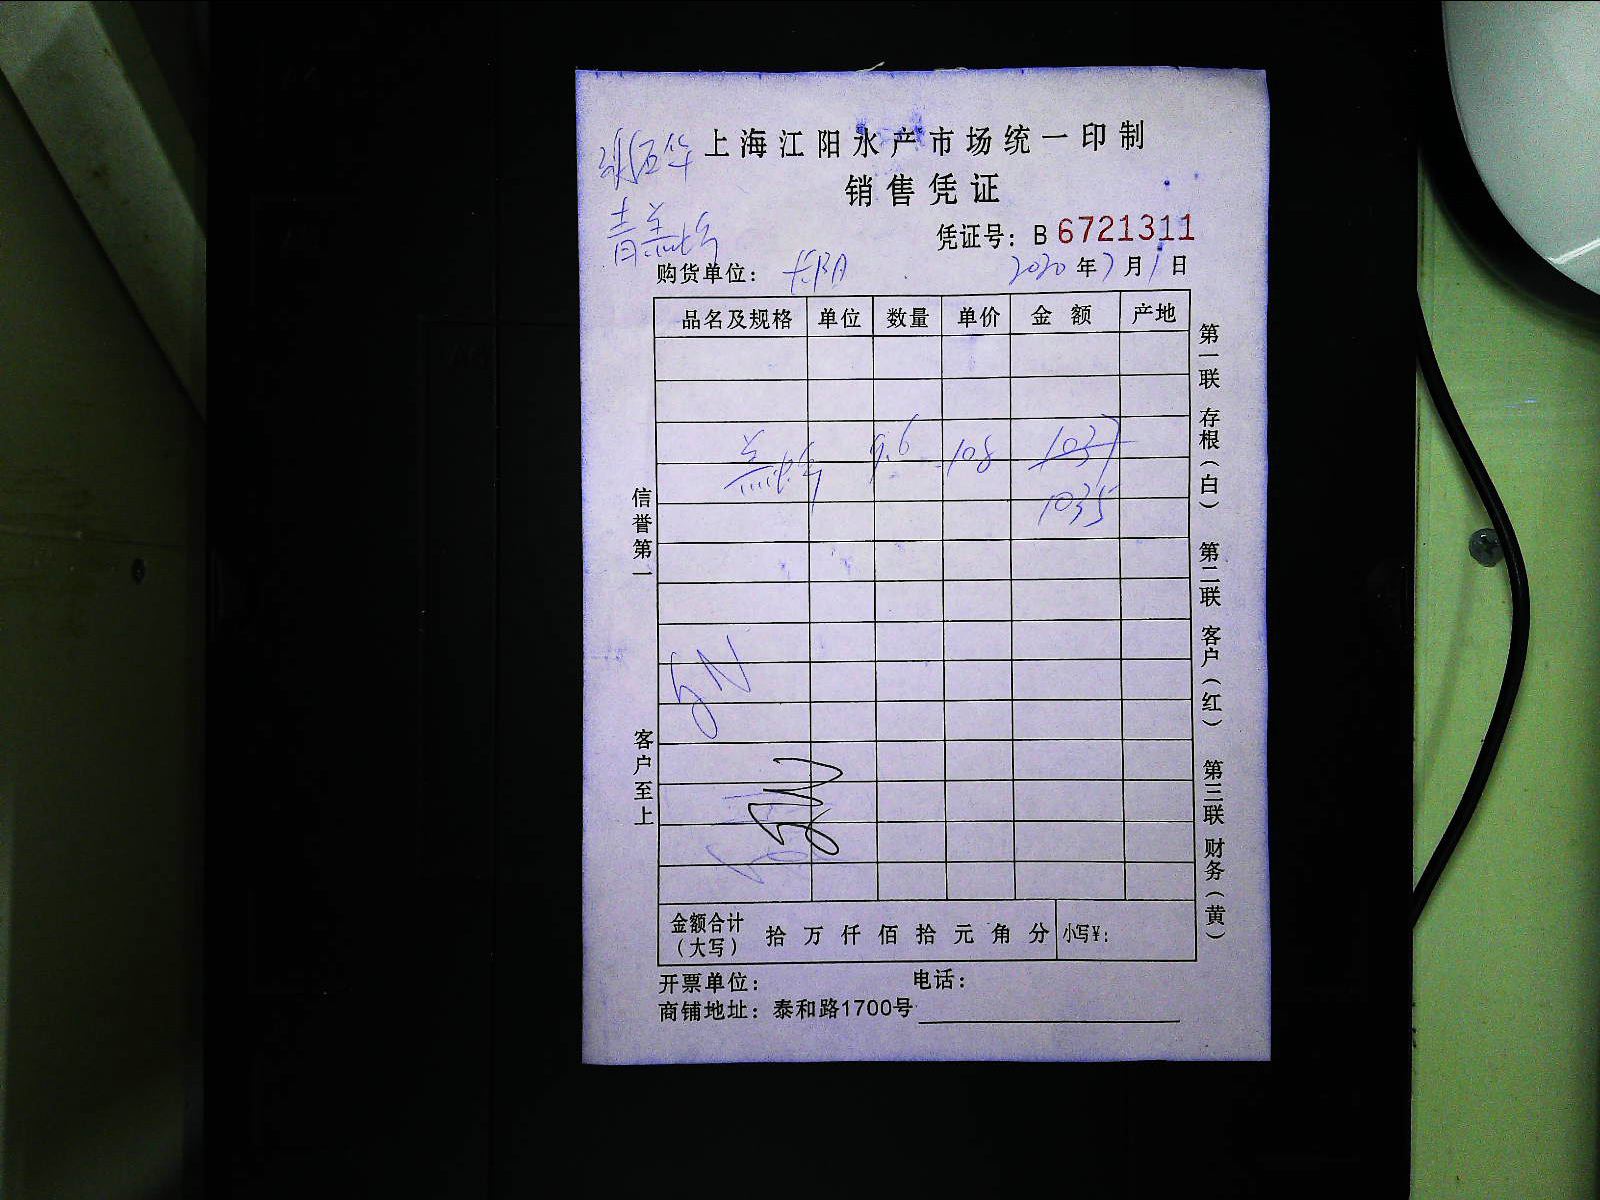 上海江阳水产市场统一印制
销售凭证
凭证号：B 6721311
青盖蛤
购货单位：
2020年7月1日
品名及规格 单位 数量 单价 金额 产地
盖蛤 9.6 108 1037
1035
金额合计（大写） 拾万仟佰拾元角分 小写¥：
开票单位： 电话：
商铺地址：泰和路1700号
信誉第一 客户至上
第一联 存根（白） 第二联 客户（红） 第三联 财务（黄）